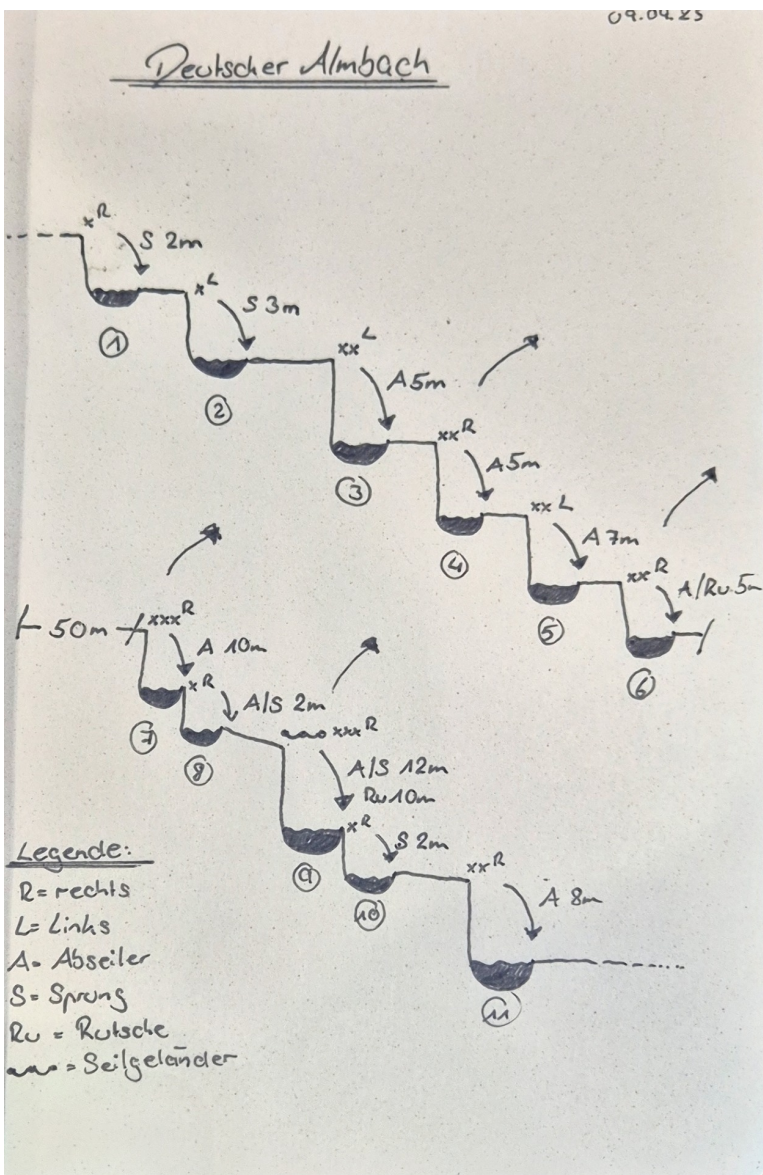 09.04.23
Deutscher Almbach
x R
S 2m
x L
S 3m
1
2
xx L
A 5m
3
xx R
A 5m
4
xx L
A 7m
5
xx R
A/Ru 5m
6
50m
xxx R
A 10m
7
x R
A/S 2m
8
xxx R
A/S 12m
Ru 10m
9
x R
S 2m
10
xx R
A 8m
11
Legende:
R = rechts
L = Links
A = Abseiler
S = Sprung
Ru = Rutsche
= Seilgeländer